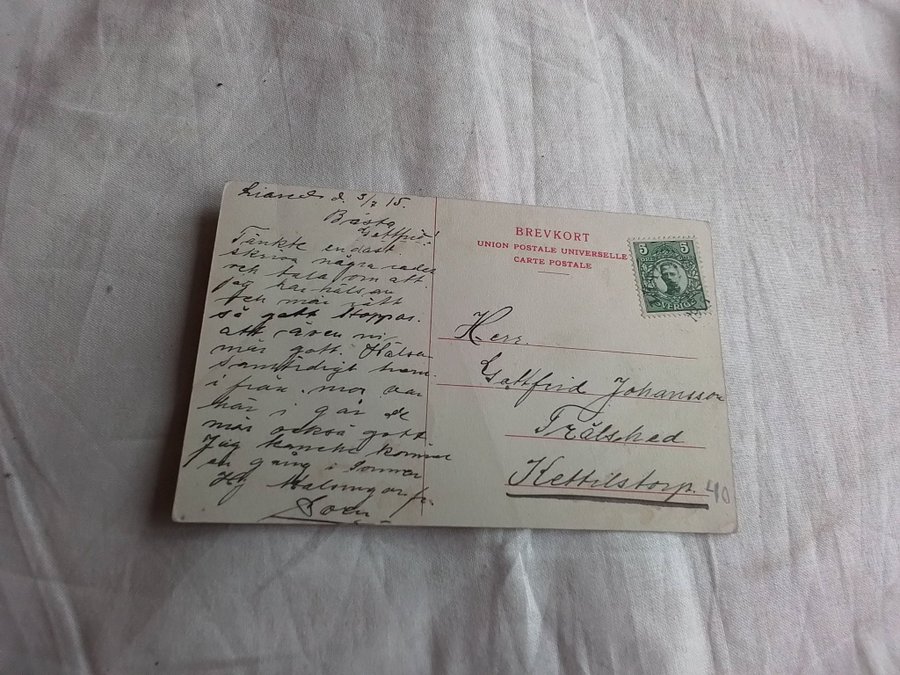 d. 3/7 15.
Bästa
Gottfrid!
Tänkte endast
skriva några rader
och tala om att
jag har hälsan
och mår rätt
så gott Hoppas
att även ni
mår gott. Hälsa
samtidigt hem
i från mor var
här i går de
mår också gott
Jag kanske kommer
en gång i sommer
Hj Halsningar fr.
BREVKORT
UNION POSTALE UNIVERSELLE
CARTE POSTALE
5 5
SVERIGE
Herr.
Gottfrid Johansson
Trålshed
Kettilstorp.
40